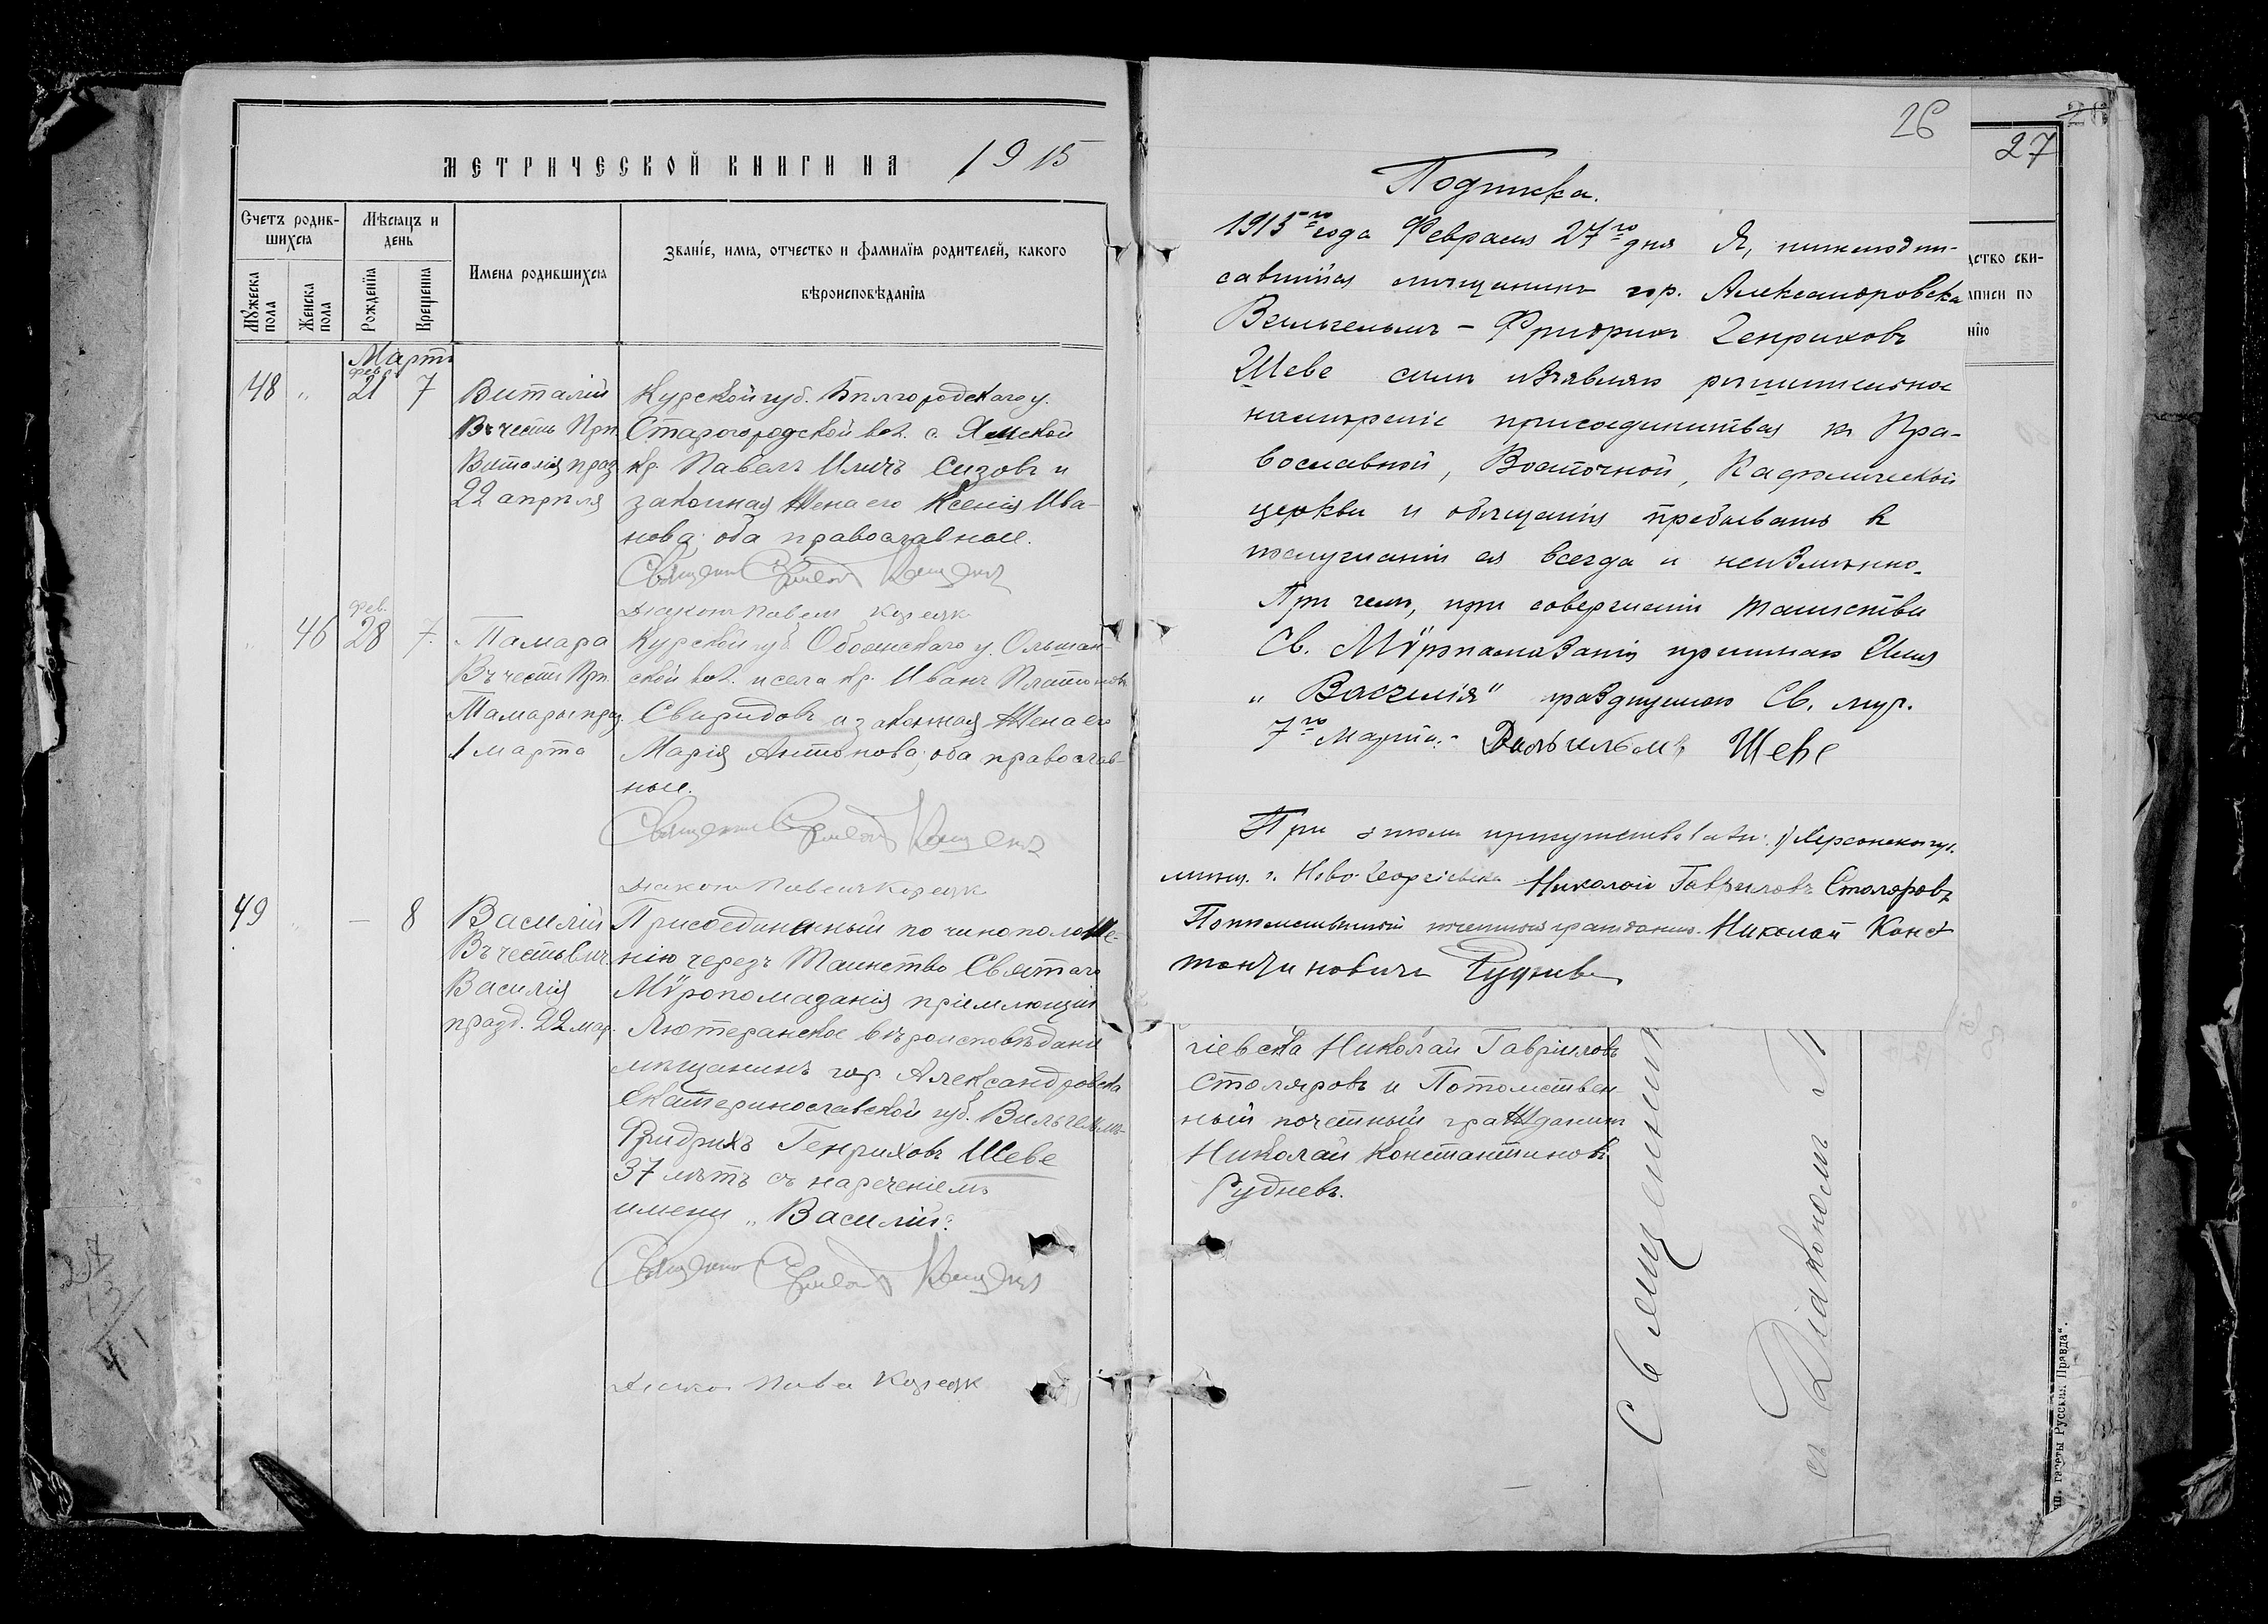 МЕТРИЧЕСКОЙ КНИГИ НА 1915
Счетъ родив-
шихся
Мѣсяцъ и
день
Имена родившихся
Званіе, имя, отчество и фамилія родителей, какого
вѣроисповѣданія
Мужеска
пола
Женска
пола
Рожденія
Крещенія
Мартъ
февр.
48 " 21 7
Виталій
Въ честь Прп.
Виталія праз.
22 апрѣля
Курской губ. Бѣлгородскаго у.
Старогородской вол. с. Ямской
кр. Павелъ Иличъ Сизовъ и
законная жена его Ксенія Ива-
нова; оба православные.
Священ
Діаконъ Павелъ
фев.
" 46 28 7.
Тамара
Въ честь Прп.
Тамары праз.
1 марта
Курской губ. Обоянскаго у. Ольшан-
ской вол. и села кр. Иванъ Платоновъ
Сваридовъ и законная жена его
Марія Антонова; оба православ-
ные.
Священ
Діаконъ Павелъ
49 " — 8
Василій
Въ честь свщ.
Василія
празд. 22 мар.
Присоединенный по чиноположе-
нію черезъ Таинство Святаго
Мѵропомазанія пріемлющій
Лютеранское вѣроисповѣданіе
мѣщанинъ гор. Александровска
Екатеринославской губ. Вильгельмъ-
Фридрихъ Генриховъ Шеве
37 лѣтъ съ нареченіемъ
имени „Василій".
Священ
Діакон Павел
27
13
41
26
Подписка.
1915го года Февраля 27го дня Я, нижеподпи-
савшійся мѣщанинъ гор. Александровска
Вильгельмъ - Фридрихъ Генриховъ
Шеве симъ изъявляю рѣшительное
намѣреніе присоединиться къ Пра-
вославной, Восточной, Кафолической
церкви и обѣщанія пребывать въ
послушаніи ея всегда и неизмѣнно.
При чемъ, при совершеніи таинства
Св. Мѵропомазанія принимаю Имя
„Василія" празднуемаго Св. муч.
7го Марта.- Вильгельмъ Шеве
При этомъ присутствовали: 1) Херсонской губ.
мѣщ. г. Ново-Георгіевска Николай Гавриловъ Столяровъ
Потомственный почетный гражданинъ. Николай Конст
тонтиновичъ Рудневъ
27
дство сви-
аписи по
нію
гіевска Николай Гавріиловъ
Столяровъ и Потомствен
ный почетный гражданинъ
Николай Константиновъ
Рудневъ.
Священник
съ Діакономъ
газеты „Русская Правда".